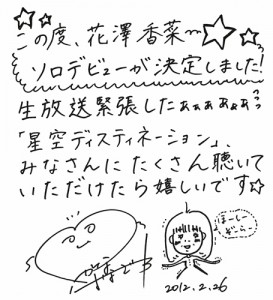 この度、花澤香菜〜
ソロデビューが決定しました!
生放送緊張したぁぁぁぁぁっっ
「星空ディスティネーション」、
みなさんにたくさん聴いて
いただけたら嬉しいです☆
ほーしー
ぞらー
2012.2.26